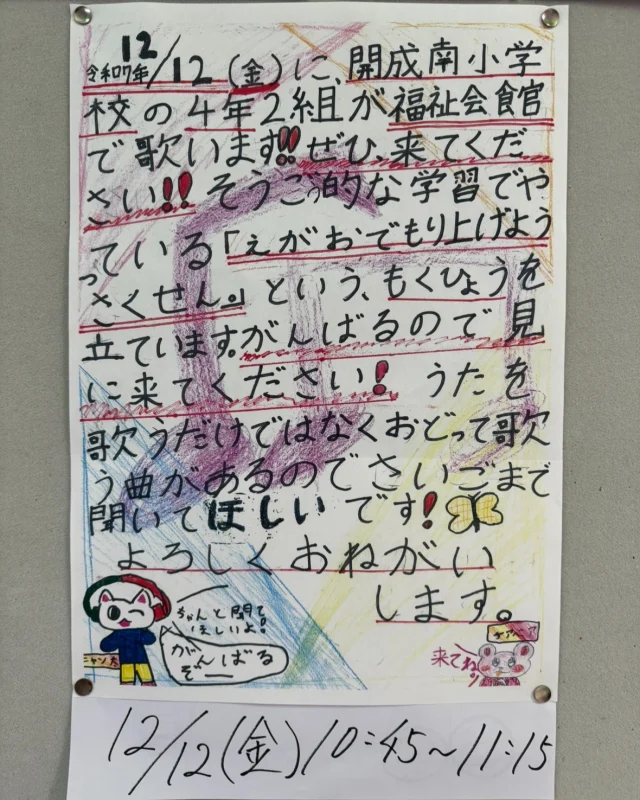 令和7年12/12(金)に、開成南小学
校の4年2組が福祉会食官
で歌います!!ぜひ来てくだ
さい!!そうごう的な学習でや
っている「えがおでもり上げよう
さくせん。」という、もくひょうを
立ています。がんばるので見
に来てください!うたを
歌うだけではなくおどって歌
う曲があるのでさいごまで
聞いてほしいです!
よろしくおねがい
します。
ちゃんと聞いて
ほしいよ!
がんばる
ぞー
ニャン太
ケアベア
来てね♪
12/12(金)10:45~11:15